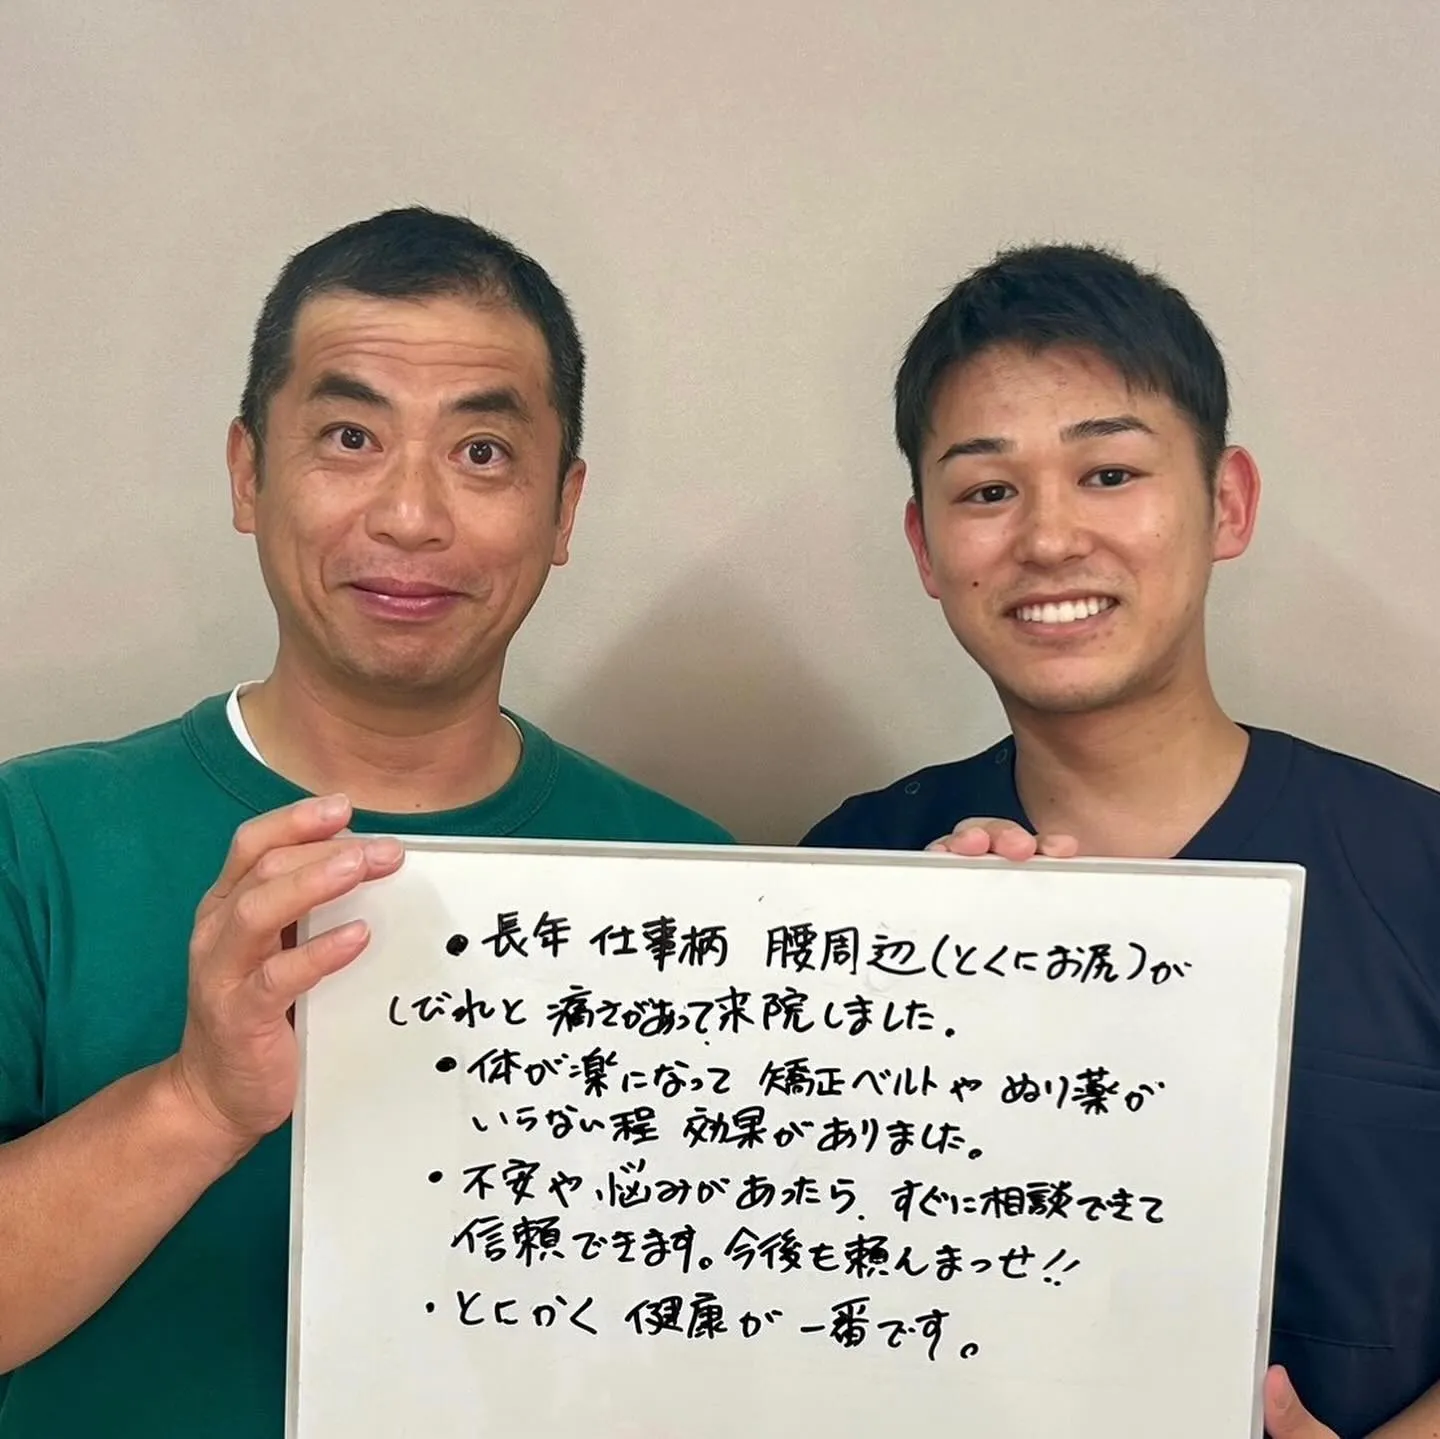 ・長年 仕事柄 腰周辺(とくにお尻)が
しびれと 痛さがあって来院しました。
・体が楽になって 矯正ベルトや ぬり薬が
いらない程 効果がありました。
・不安や、悩みがあったら、すぐに相談できて
信頼できます。今後も頼んまっせ!!
・とにかく 健康が 一番です。